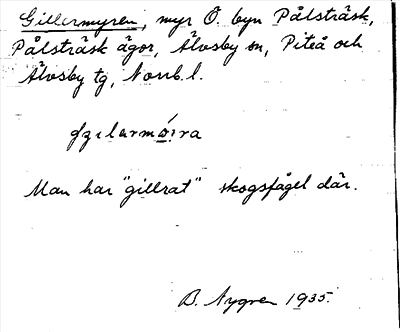 Gillermyren, myr Ö. byn Pålsträsk,
Pålsträsk ägor, Älvsby sn, Piteå och
Älvsby tg, Norrb. l.
Man har "gillrat" skogsfågel där.
B. Nygren 1935.